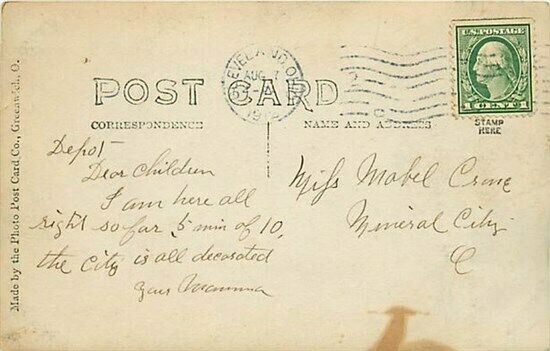 CLEVELAND, OHIO
AUG 7
U.S. POSTAGE
1 CENT 1
POST CARD
CORRESPONDENCE
NAME AND ADDRESS
STAMP
HERE
Made by the Photo Post Card Co., Greenwich, O.
Depot-
Dear Children
I am here all
right so far, 5 min of 10,
the City is all decorated
Your Mamma
Miss Mabel Crone
Mineral City
O